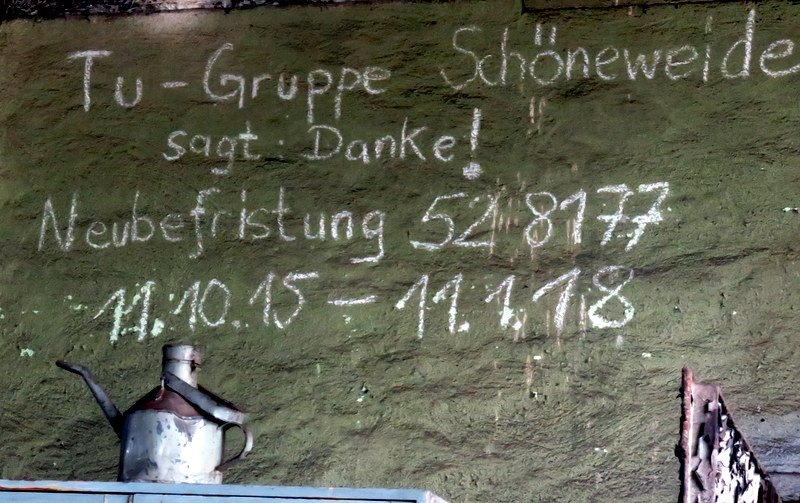 Tu-Gruppe Schöneweide
sagt Danke!
Neubefristung 52 8177
11.10.15 - 11.1.18